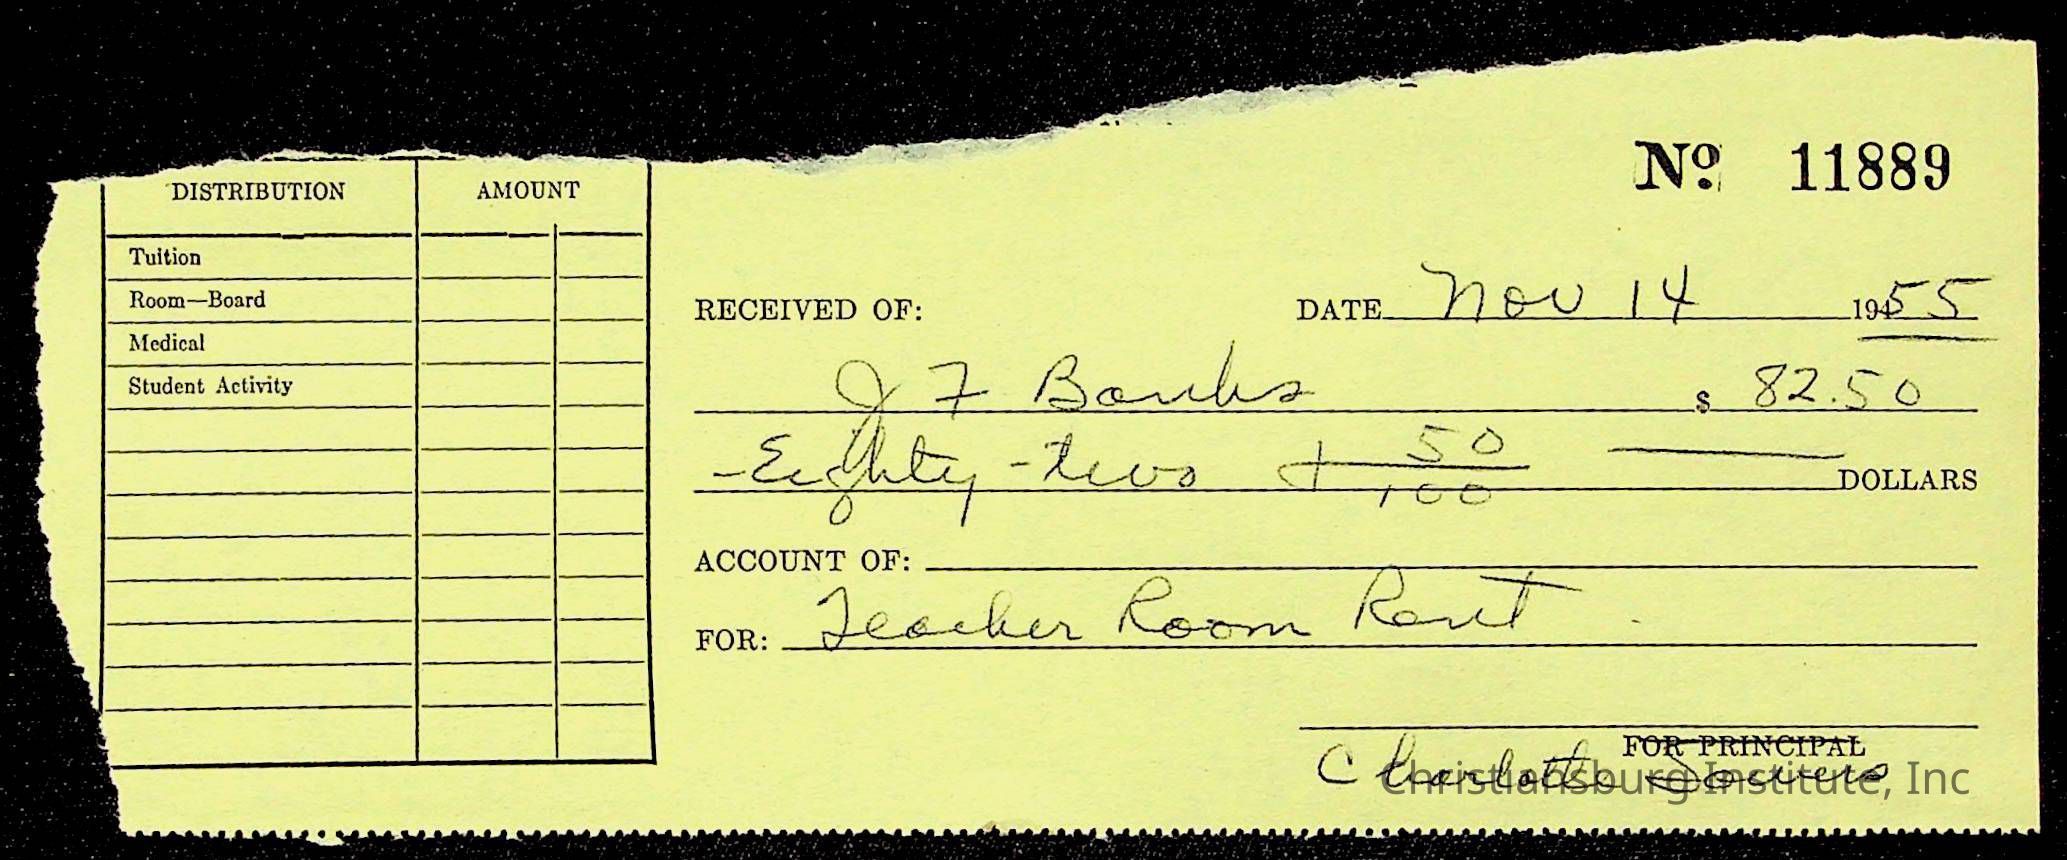 DISTRIBUTION AMOUNT
Tuition
Room—Board
Medical
Student Activity
No 11889
RECEIVED OF: DATE Nov 14 1955
J F Banks $ 82.50
-Eighty-two + 50/100 DOLLARS
ACCOUNT OF:
FOR: Teacher Room Rent
FOR PRINCIPAL
Charlotte Sowers
Christiansburg Institute, Inc